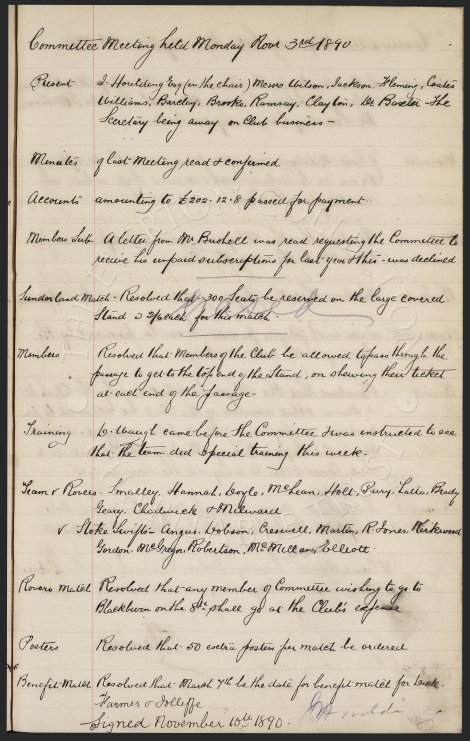 Committee Meeting held Monday Novr 3rd 1890
Present J. Houlding Esq (in the chair) Messrs Wilson, Jackson, Fleming, Coates
Williams, Barclay, Brooks, Ramsay, Clayton, Dr Baxter - The
Secretary being away on Club business -
Minutes of last Meeting read & confirmed
Accounts amounting to £202.12.8 passed for payment
Members Sub A letter from Mr Bushell was read requesting the Committee to
receive his unpaid subscriptions for last year & this - was declined
Sunderland Match - Resolved that 300 Seats be reserved on the large covered
Stand @ 2/6 each for this match.
Members Resolved that Members of the Club be allowed to pass through the
passage to get to the top end of the Stand, on shewing their ticket
at each end of the passage -
Training D. Waugh came before the Committee & was instructed to see
that the team did special training this week -
Team v Rovers, Smalley, Hannah, Doyle, McLean, Holt, Parry, Latta, Brady
Geary, Chadwick & Milward
v Stoke Swifts - Angus, Dobson, Creswell, Martin, R. Jones, Kirkwood
Gordon, McGregor, Robertson, McMillan, Elliott.
Rovers Match Resolved that any member of Committee wishing to go to
Blackburn on the 8th shall go at the Club's expense
Posters Resolved that 50 extra posters per match be ordered
Benefit Match Resolved that March 7th be the date for benefit match for
Farmer & Jolliffe
Signed November 10th 1890 -
J Houlding